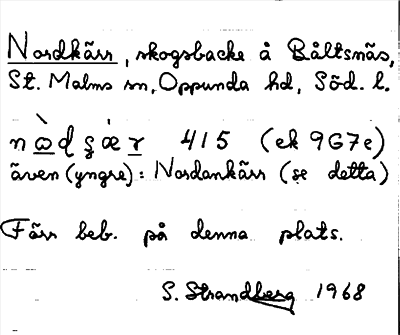 Nordkärr, skogsbacke å Båltsnäs,
St. Malms sn, Oppunda hd, Söd. l.
415 (ek 9G7e)
även (yngre): Nordankärr (se detta)
Förr beb. på denna plats.
S. Strandberg 1968